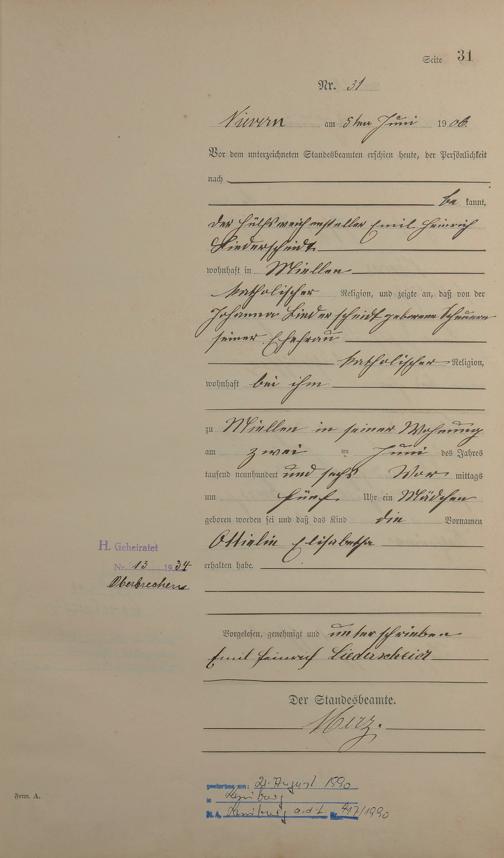 Seite 31
Nr. 31
Nievern am 5ten Juni 1906.
Vor dem unterzeichneten Standesbeamten erschien heute, der Persönlichkeit
nach
be kannt,
der Emil Heinrich
Liederscheidt
wohnhaft in Miellen
katholischer Religion, und zeigte an, daß von der
Johanna Liederscheidt geborene
seiner Ehefrau
katholischer Religion,
wohnhaft bei ihm
zu Miellen in seiner Wohnung
am zwei ten Juni des Jahres
tausend neunhundert und sechs Vor mittags
um fünf Uhr ein Mädchen
geboren worden sei und daß das Kind die Vornamen
Ottielin Elisabetha
erhalten habe.
H. Geheiratet
Nr. 13 1934
Oberbrechen
Vorgelesen, genehmigt und unterschrieben
Emil Heinrich Liederscheidt
Der Standesbeamte.
Merz.
gestorben am: 21. August 1990
in
St. A. a.d.L Nr. 417/1990
Form. A.